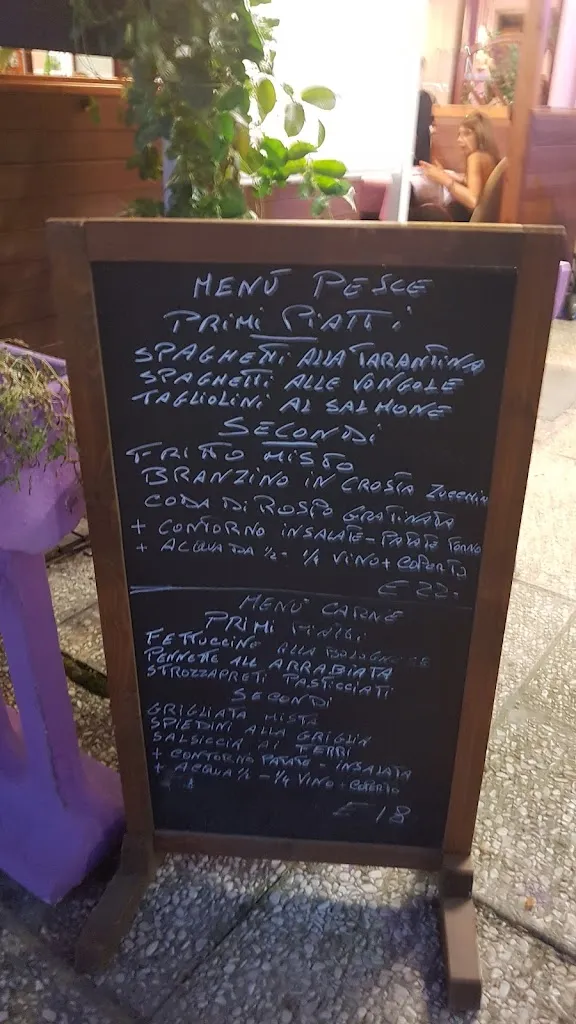 MENÚ PESCE
PRIMI PIATTI
SPAGHETTI ALLA TARANTINA
SPAGHETTI ALLE VONGOLE
TAGLIOLINI AL SALMONE
SECONDI
FRITTO MISTO
BRANZINO IN CROSTA ZUCCHINE
CODA DI ROSPO GRATINATA
+ CONTORNO INSALATE - PATATE FORNO
+ ACQUA DA ½ - ¼ VINO + COPERTO
E 22.
MENÚ CARNE
PRIMI PIATTI
FETTUCCINE ALLA BOLOGNESE
PENNETTE ALL ARRABIATA
STROZZAPRETI PASTICCIATI
SECONDI
GRIGLIATA MISTA
SPIEDINI ALLA GRIGLIA
SALSICCIA AI FERRI
+ CONTORNO PATATE - INSALATA
+ ACQUA ½ - ¼ VINO + COPERTO
E 18